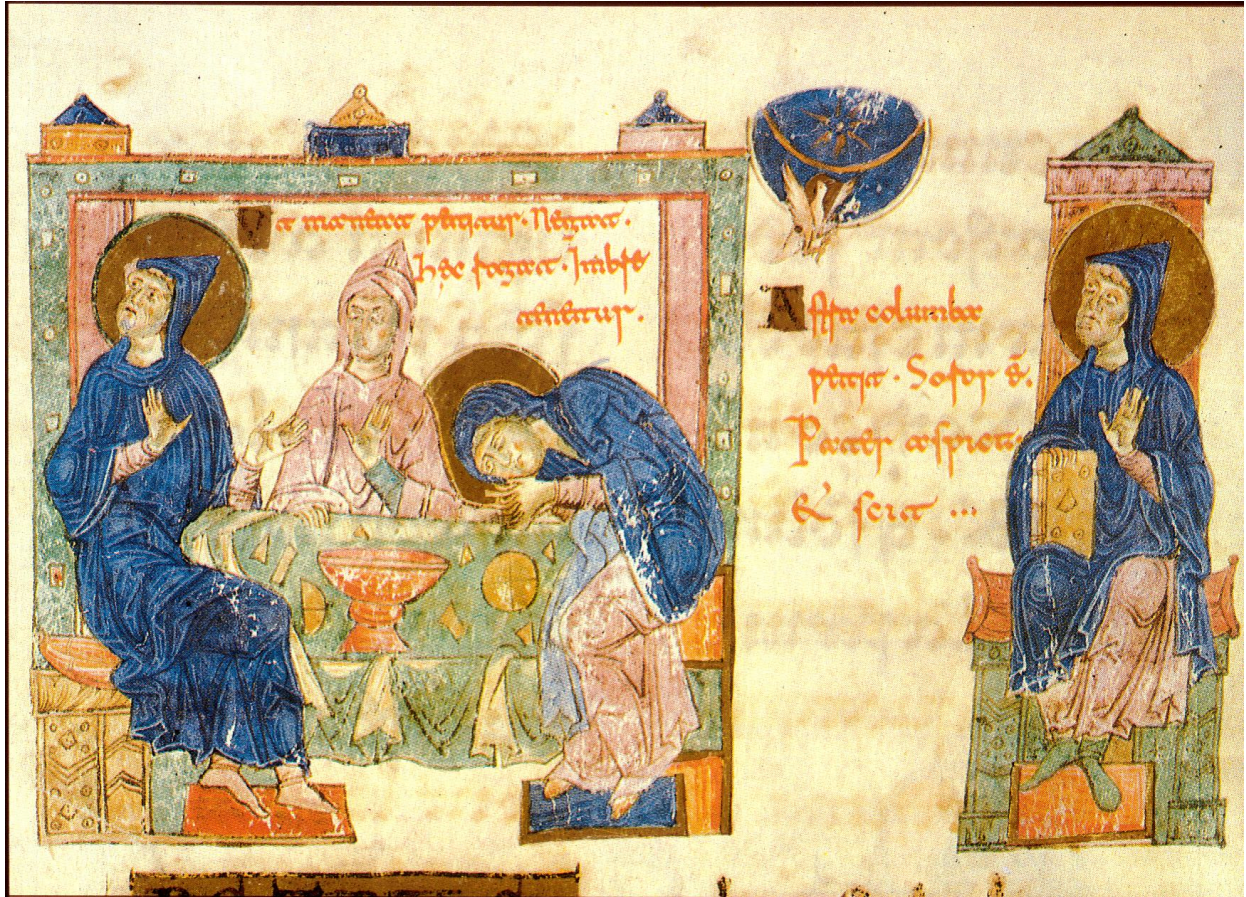 Ut maneat petitur. Negat.
hec rogat. Imbre
tenetur.
Astra columba
petit. Soror ē.
Pater aspicit.
& scit ...